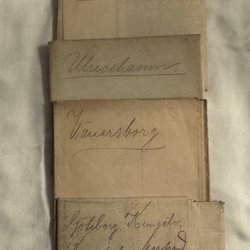 Ulricehamn.
Vänersborg
Göteborg, Kungelv,